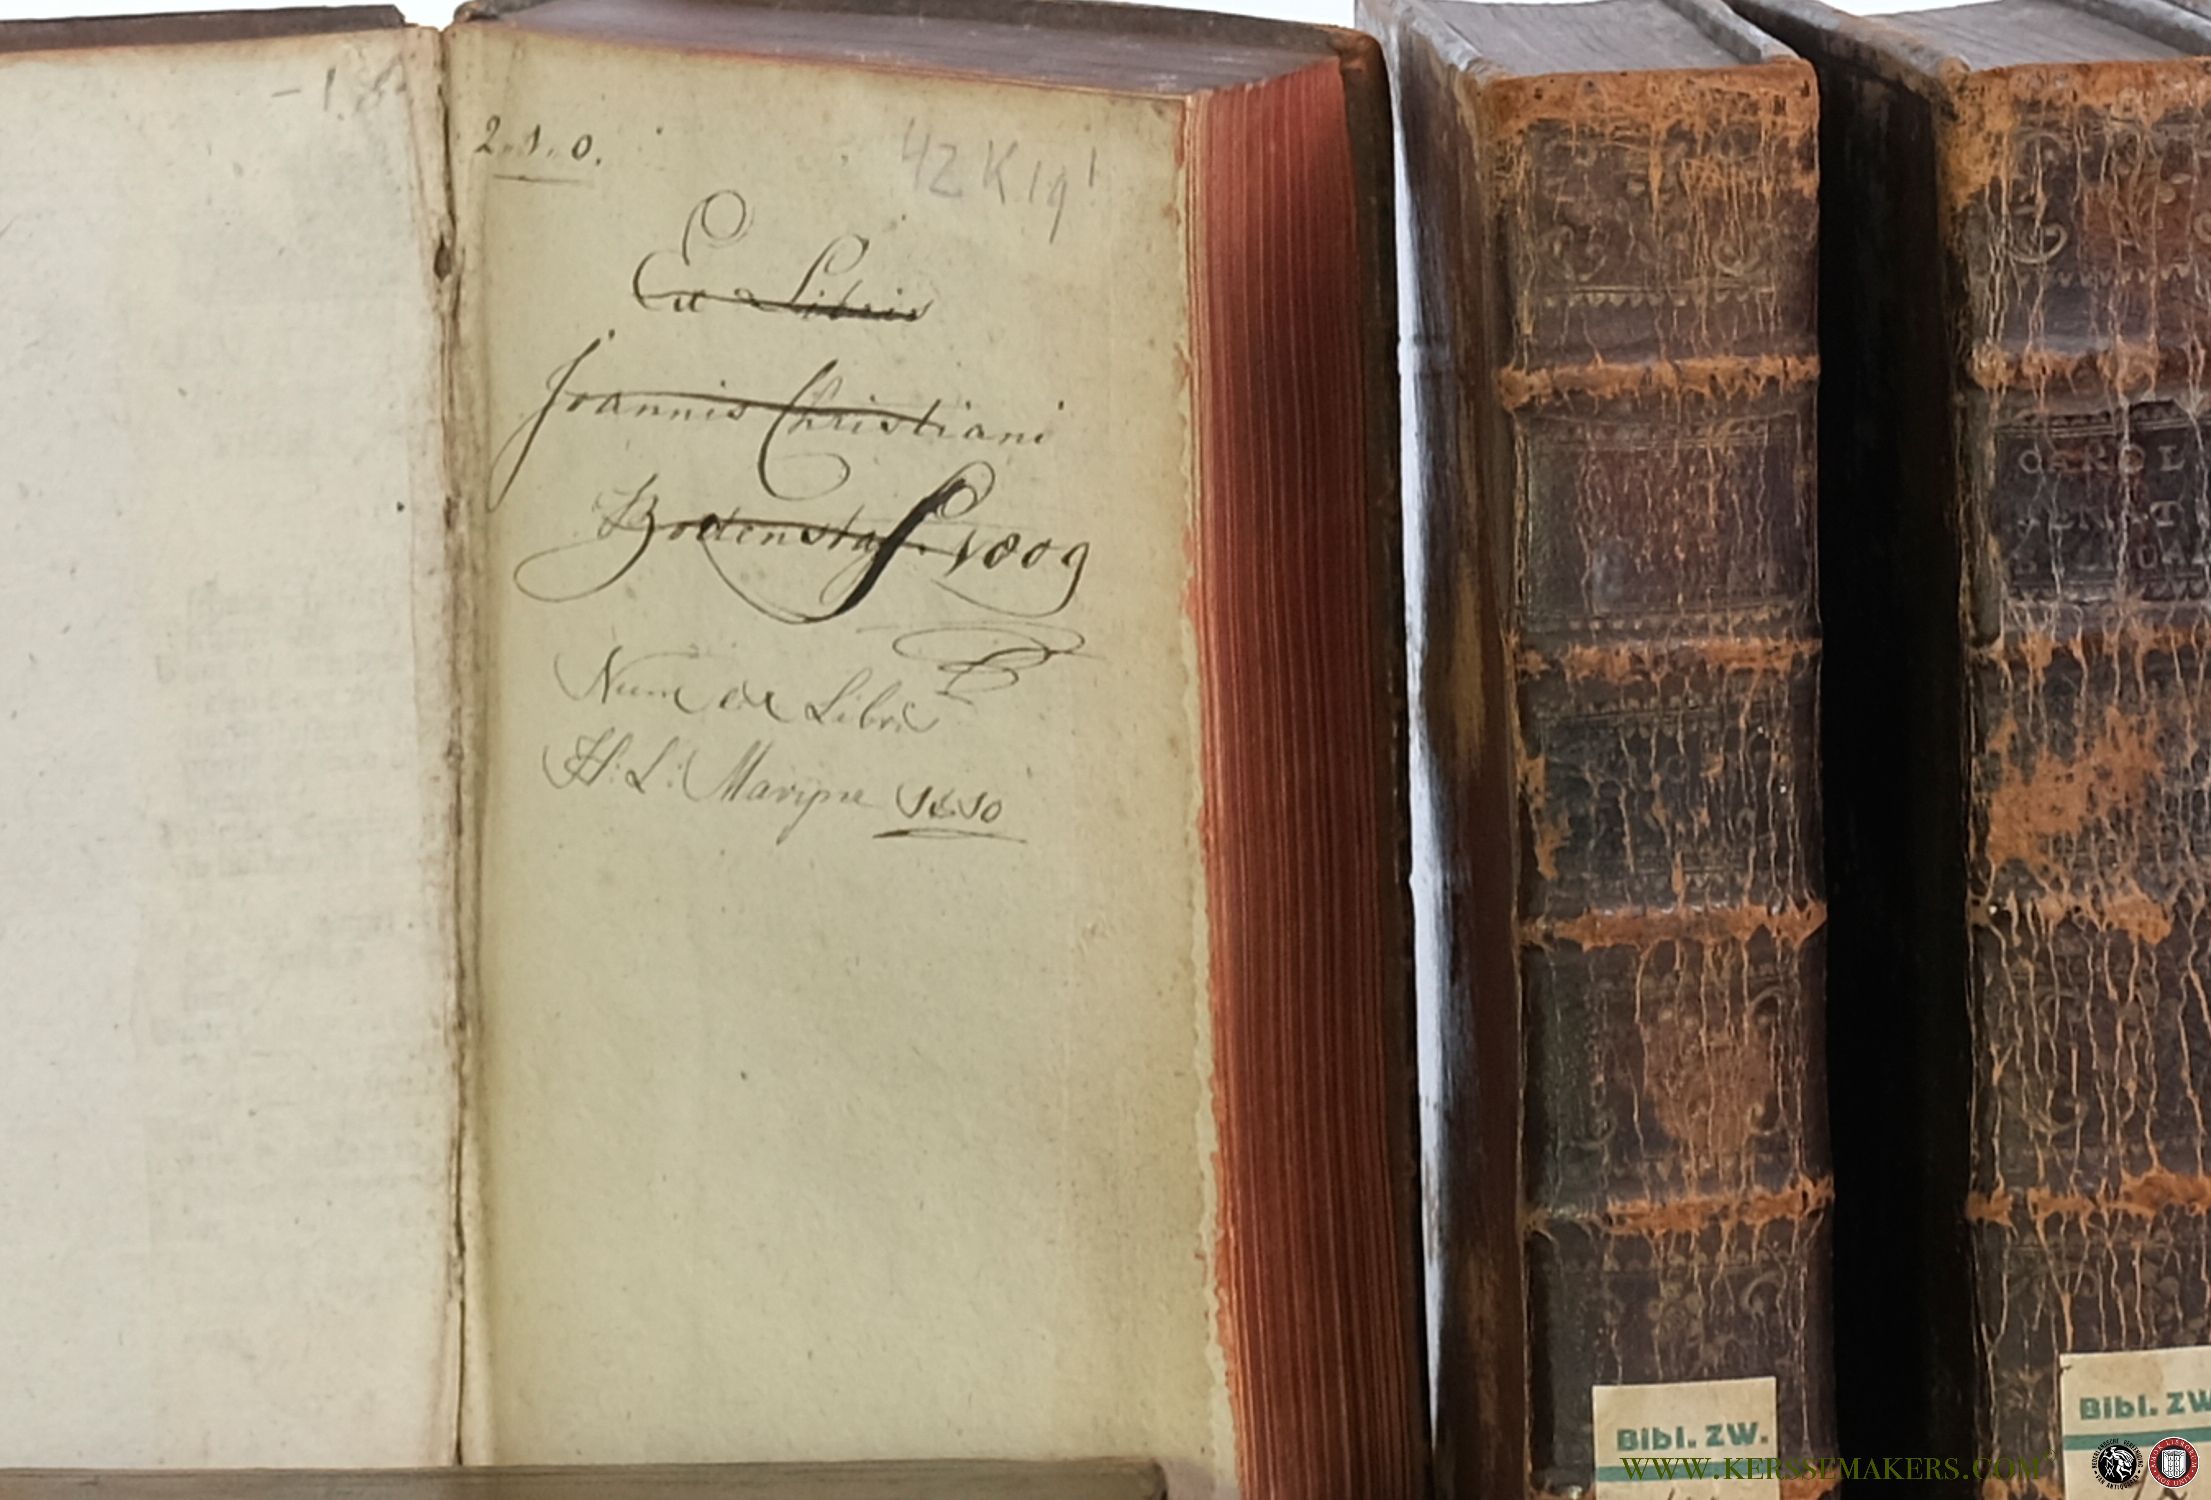 2.1.0.
42 K 19¹
Ex Libris
Joannis Christiani
Bodenstaff. 1809
Nunc ex Libris
H: L: 1810
CAROL
Bibl. ZW.
Bibl. ZW
WWW.KERSSEMAKERS.COM